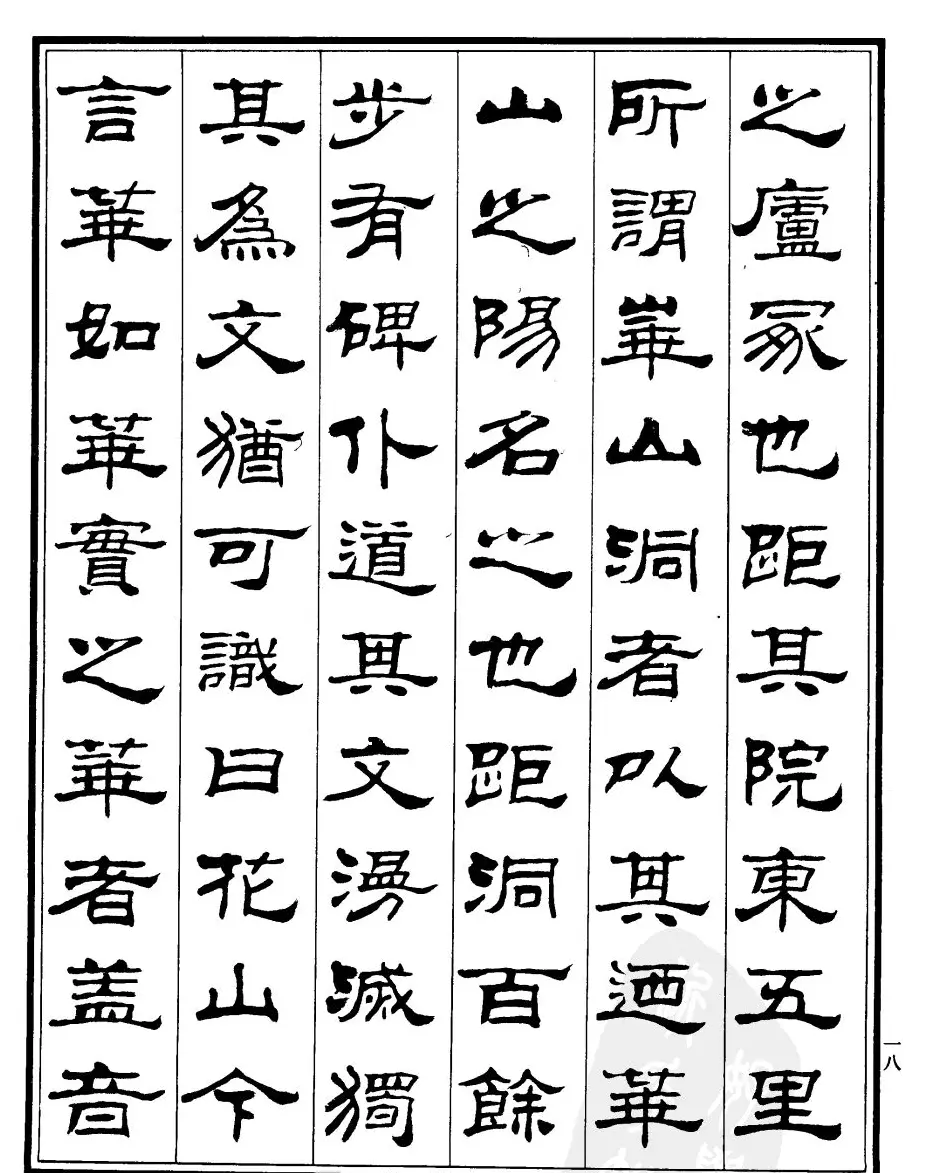 之廬冢也距其院東五里
所謂華山洞者以其迺華
山之陽名之也距洞百餘
步有碑仆道其文漫滅獨
其爲文猶可識曰花山今
言華如華實之華者盖音
一八